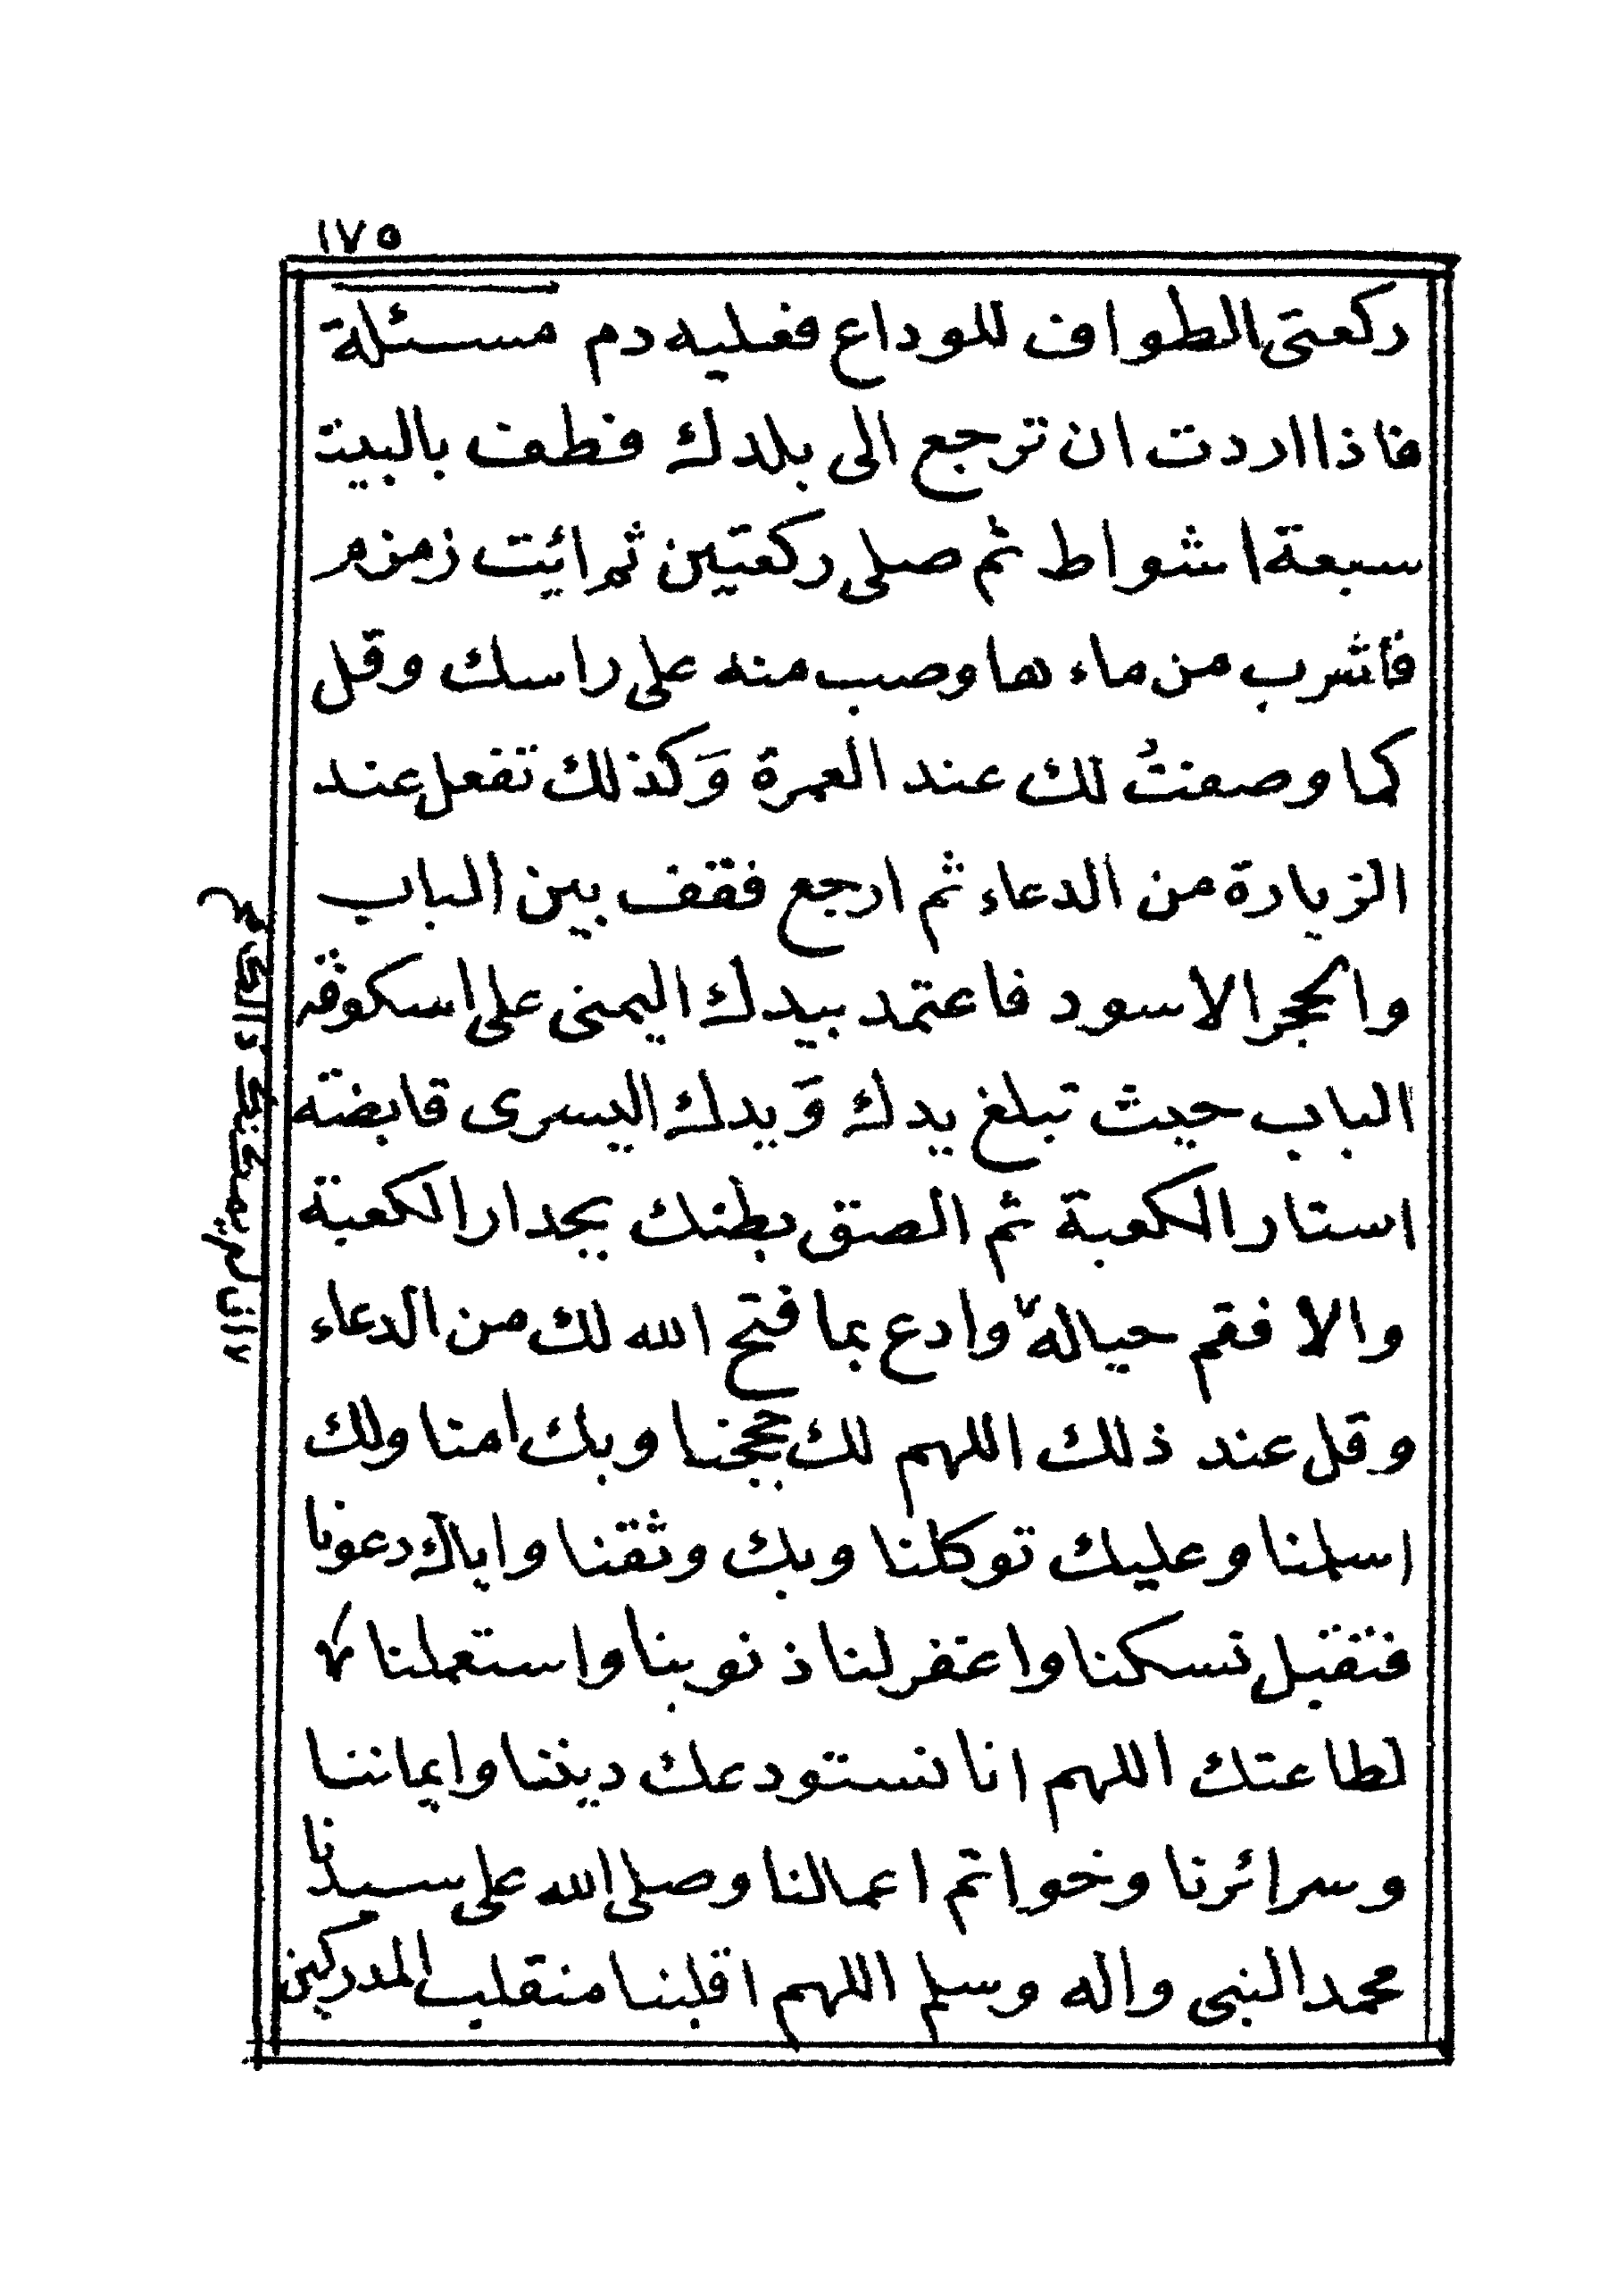 ١٧٥
ركعتى الطواف للوداع فعليه دم مسئلة
فاذا اردت ان ترجع الى بلدك فطف بالبيت
سبعة اشواط ثم صلى ركعتين ثم ائيت زمزم
فأشرب من ماءها وصب منه على راسك وقل
كما وصفتُ لك عند العمرة وَكذلك تفعل عند
الزيارة من الدعاء ثم ارجع فقف بين الباب
والحجر الاسود فاعتمد بيدك اليمنى على اسكوفة
الباب حيث تبلغ يدك وَيدك اليسرى قابضته
استار الكعبة ثم الصتق بطنك بجدار الكعبة
والا فقم حياله ٧ وادع بما فتح الله لك من الدعاء
٧ ان لم يمكنك ذالك
وقل عند ذلك اللهم لك حججنا وبك امنا ولك
اسلمنا وعليك توكلنا وبك وثقنا واياك دعونا
فتقبل نسكنا واغفر لنا ذنوبنا واستعملنا
لطاعتك اللهم انا نستودعك ديننا وايماننا
وسرائرنا وخواتم اعمالنا وصلى الله على سيدنا
محمد النبى واله وسلم اللهم اقلبنا منقلب المدركين